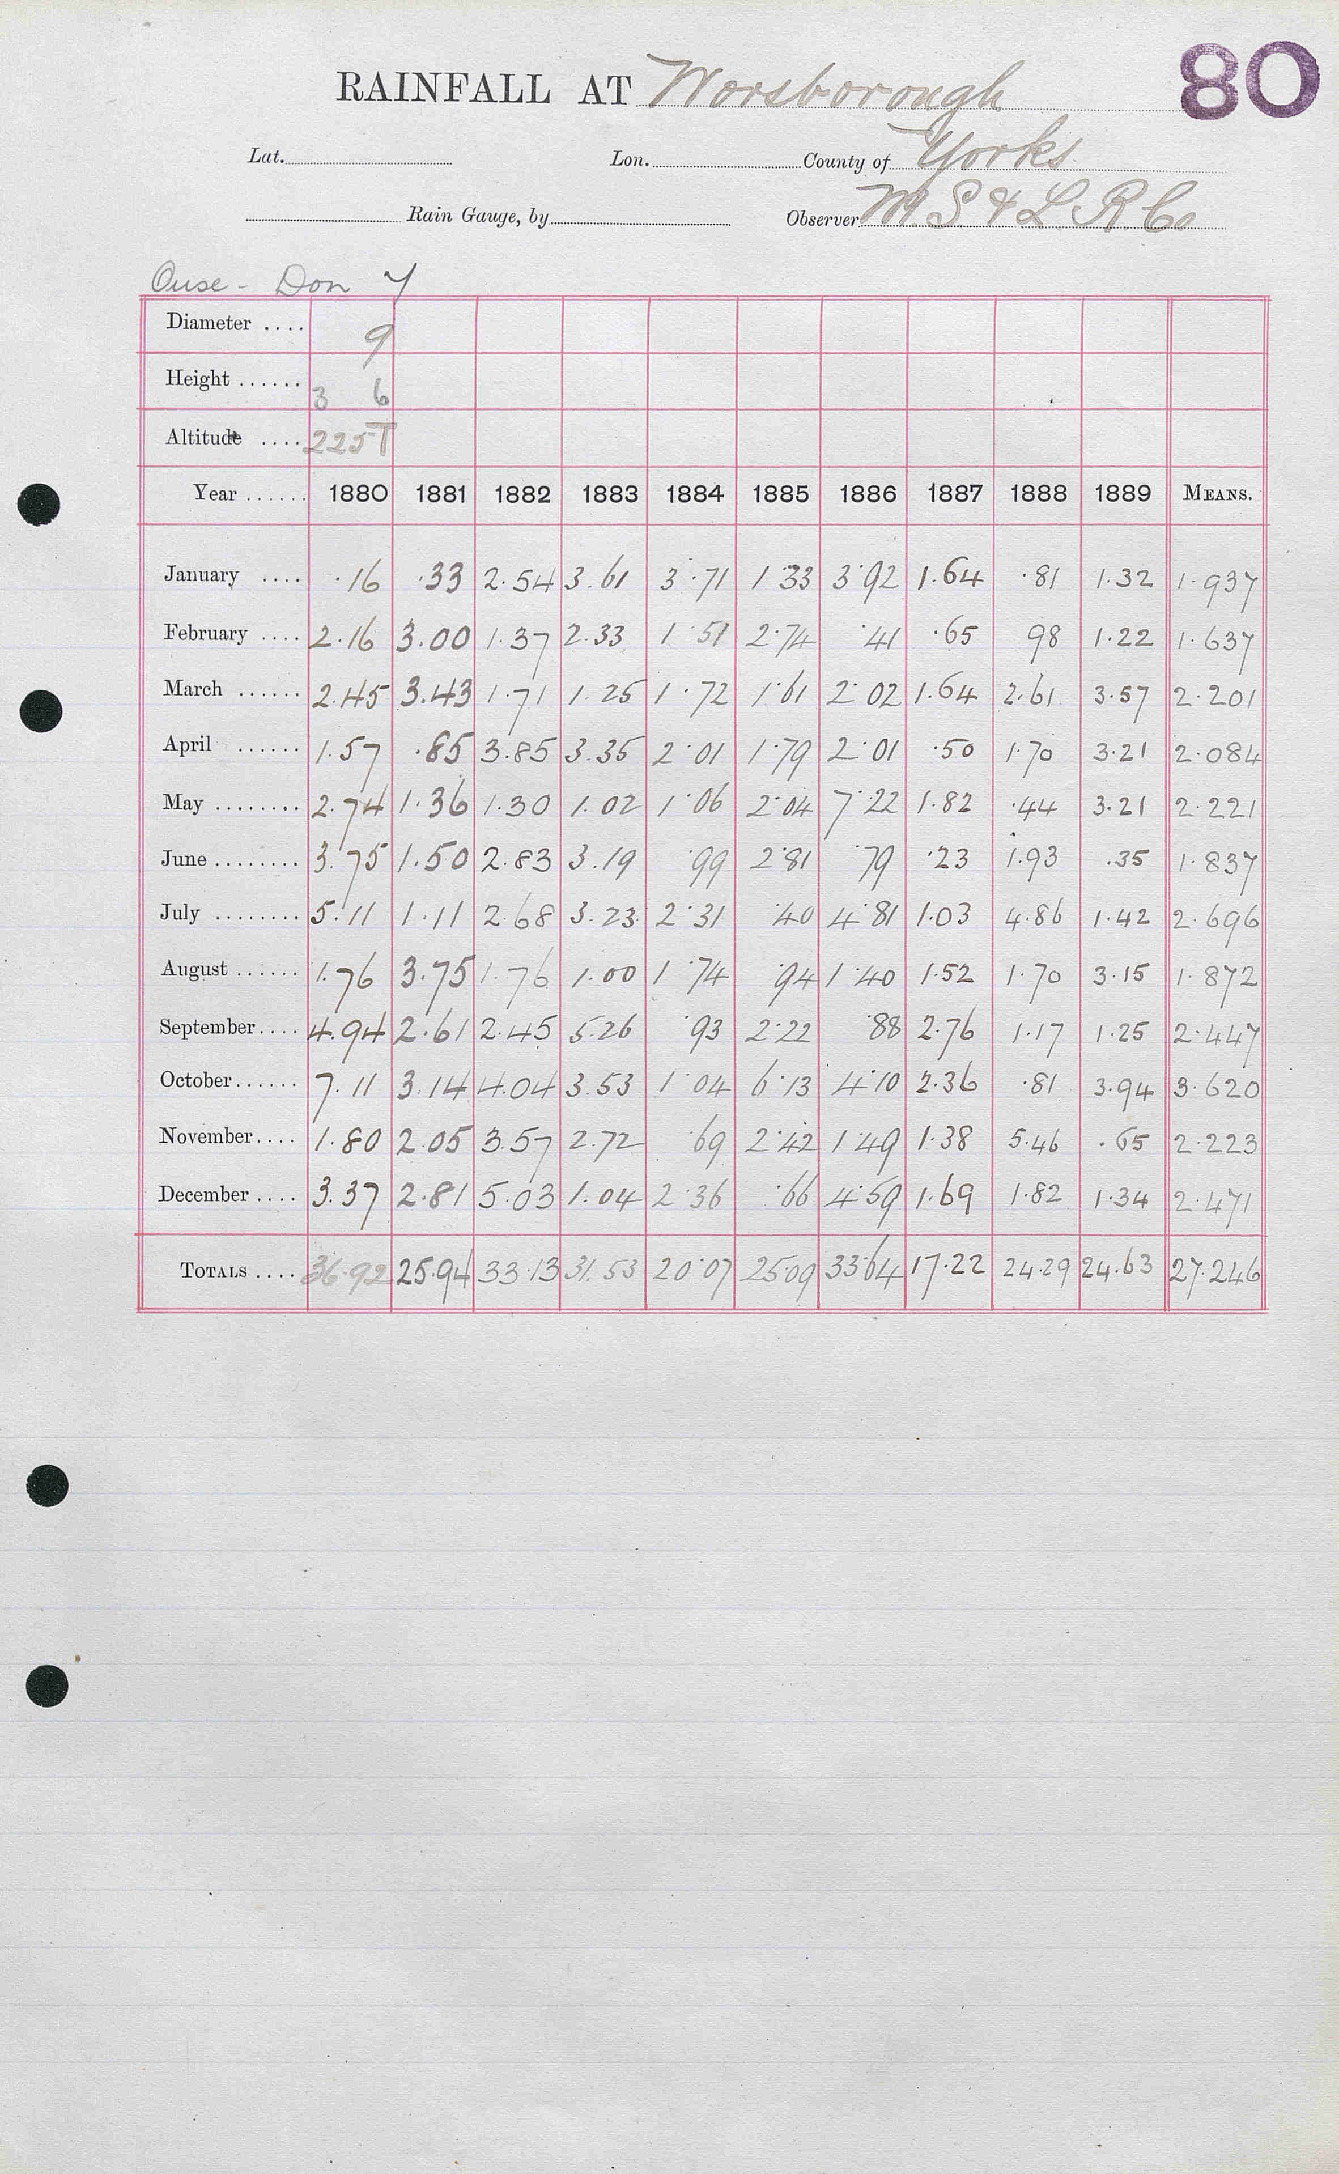 80
RAINFALL AT Worsborough
Lat. Lon. County of Yorks
Rain Gauge, by Observer M S & L R Co
Ouse - Don Y
Diameter .... 9
Height ...... 3 6
Altitude .... 225 T
Year ...... 1880 1881 1882 1883 1884 1885 1886 1887 1888 1889 MEANS.
January .... .16 .33 2.54 3.61 3.71 1.33 3.92 1.64 .81 1.32 1.937
February .... 2.16 3.00 1.37 2.33 1.51 2.74 .41 .65 98 1.22 1.637
March ...... 2.45 3.43 1.71 1.25 1.72 1.61 2.02 1.64 2.61 3.57 2.201
April ...... 1.57 .85 3.85 3.35 2.01 1.79 2.01 .50 1.70 3.21 2.084
May ........ 2.74 1.36 1.30 1.02 1.06 2.04 7.22 1.82 .44 3.21 2.221
June ........ 3.75 1.50 2.83 3.19 .99 2.81 .79 .23 1.93 .35 1.837
July ........ 5.11 1.11 2.68 3.23 2.31 .40 4.81 1.03 4.86 1.42 2.696
August ...... 1.76 3.75 1.76 1.00 1.74 .94 1.40 1.52 1.70 3.15 1.872
September .... 4.94 2.61 2.45 5.26 .93 2.22 .88 2.76 1.17 1.25 2.447
October ...... 7.11 3.14 4.04 3.53 1.04 6.13 4.10 2.36 .81 3.94 3.620
November .... 1.80 2.05 3.57 2.72 .69 2.42 1.49 1.38 5.46 .65 2.223
December .... 3.37 2.81 5.03 1.04 2.36 .66 4.59 1.69 1.82 1.34 2.471
TOTALS .... 36.92 25.94 33.13 31.53 20.07 25.09 33.64 17.22 24.29 24.63 27.246